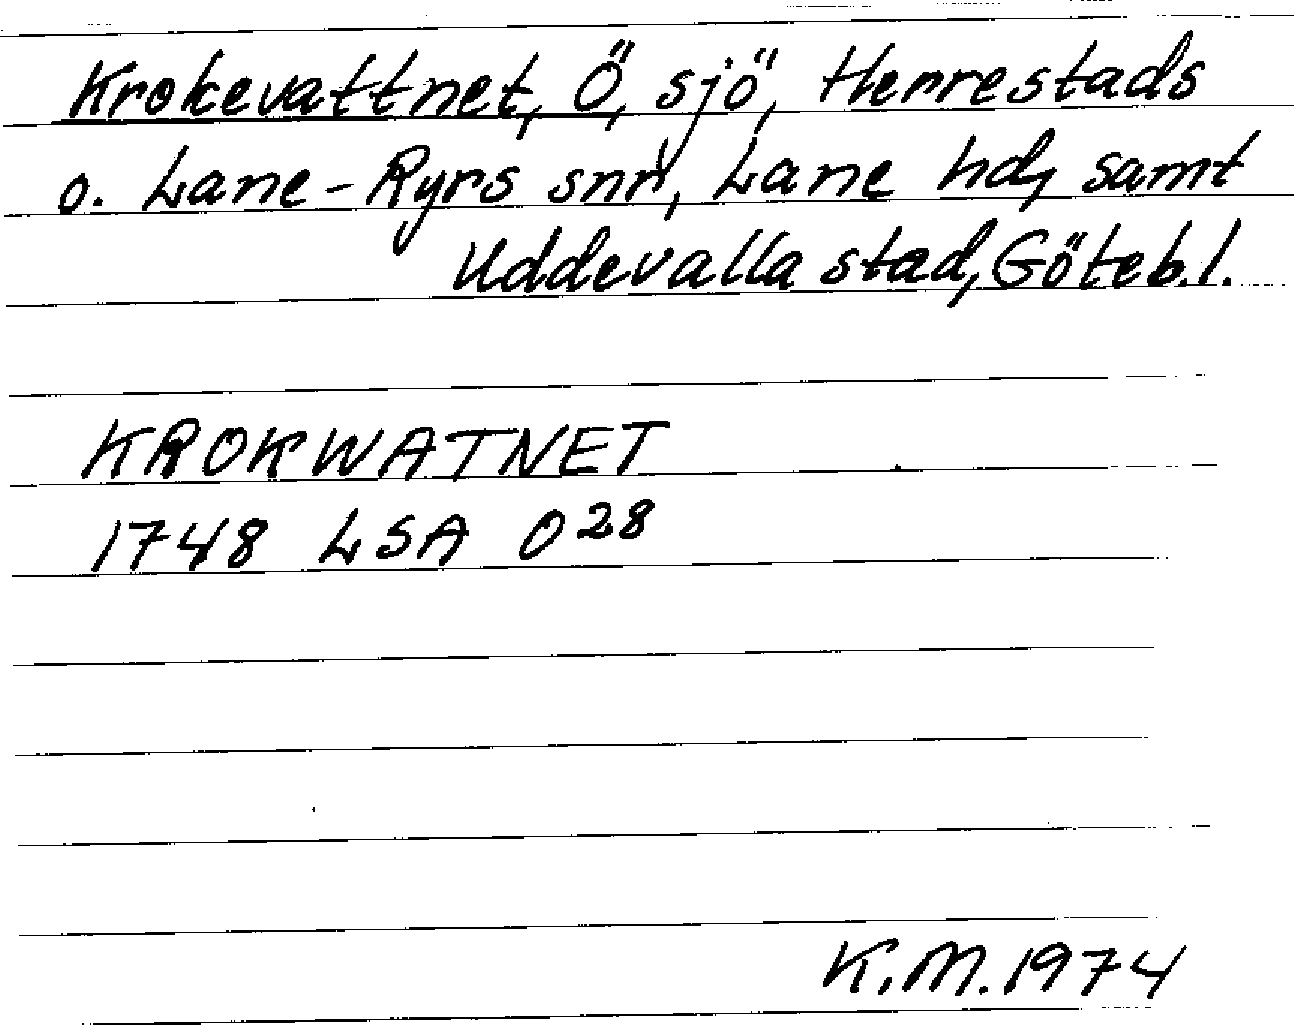 Krokevattnet, Ö, sjö, Herrestads
o. Lane-Ryrs snr, Lane hd, samt
Uddevalla stad, Göteb.l.
KROKWATNET
1748 LSA O28
K.M. 1974